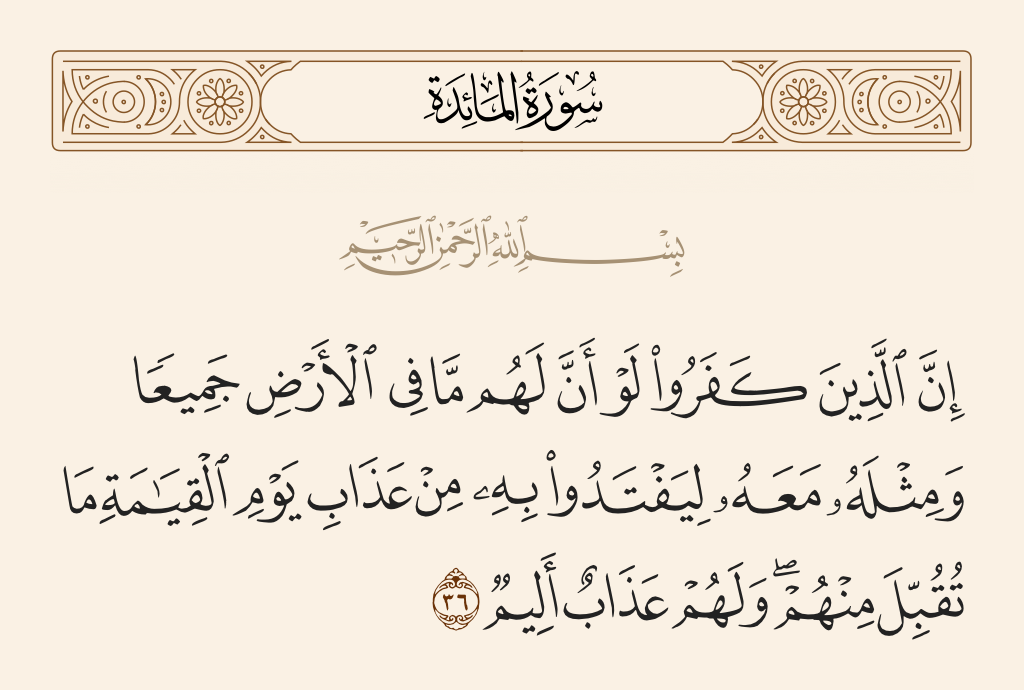 سُورَةُ المَائِدَةِ
بِسْمِ ٱللَّهِ ٱلرَّحْمَٰنِ ٱلرَّحِيمِ
إِنَّ ٱلَّذِينَ كَفَرُوا۟ لَوْ أَنَّ لَهُم مَّا فِى ٱلْأَرْضِ جَمِيعًا
وَمِثْلَهُۥ مَعَهُۥ لِيَفْتَدُوا۟ بِهِۦ مِنْ عَذَابِ يَوْمِ ٱلْقِيَـٰمَةِ مَا
تُقُبِّلَ مِنْهُمْ ۖ وَلَهُمْ عَذَابٌ أَلِيمٌ ٣٦